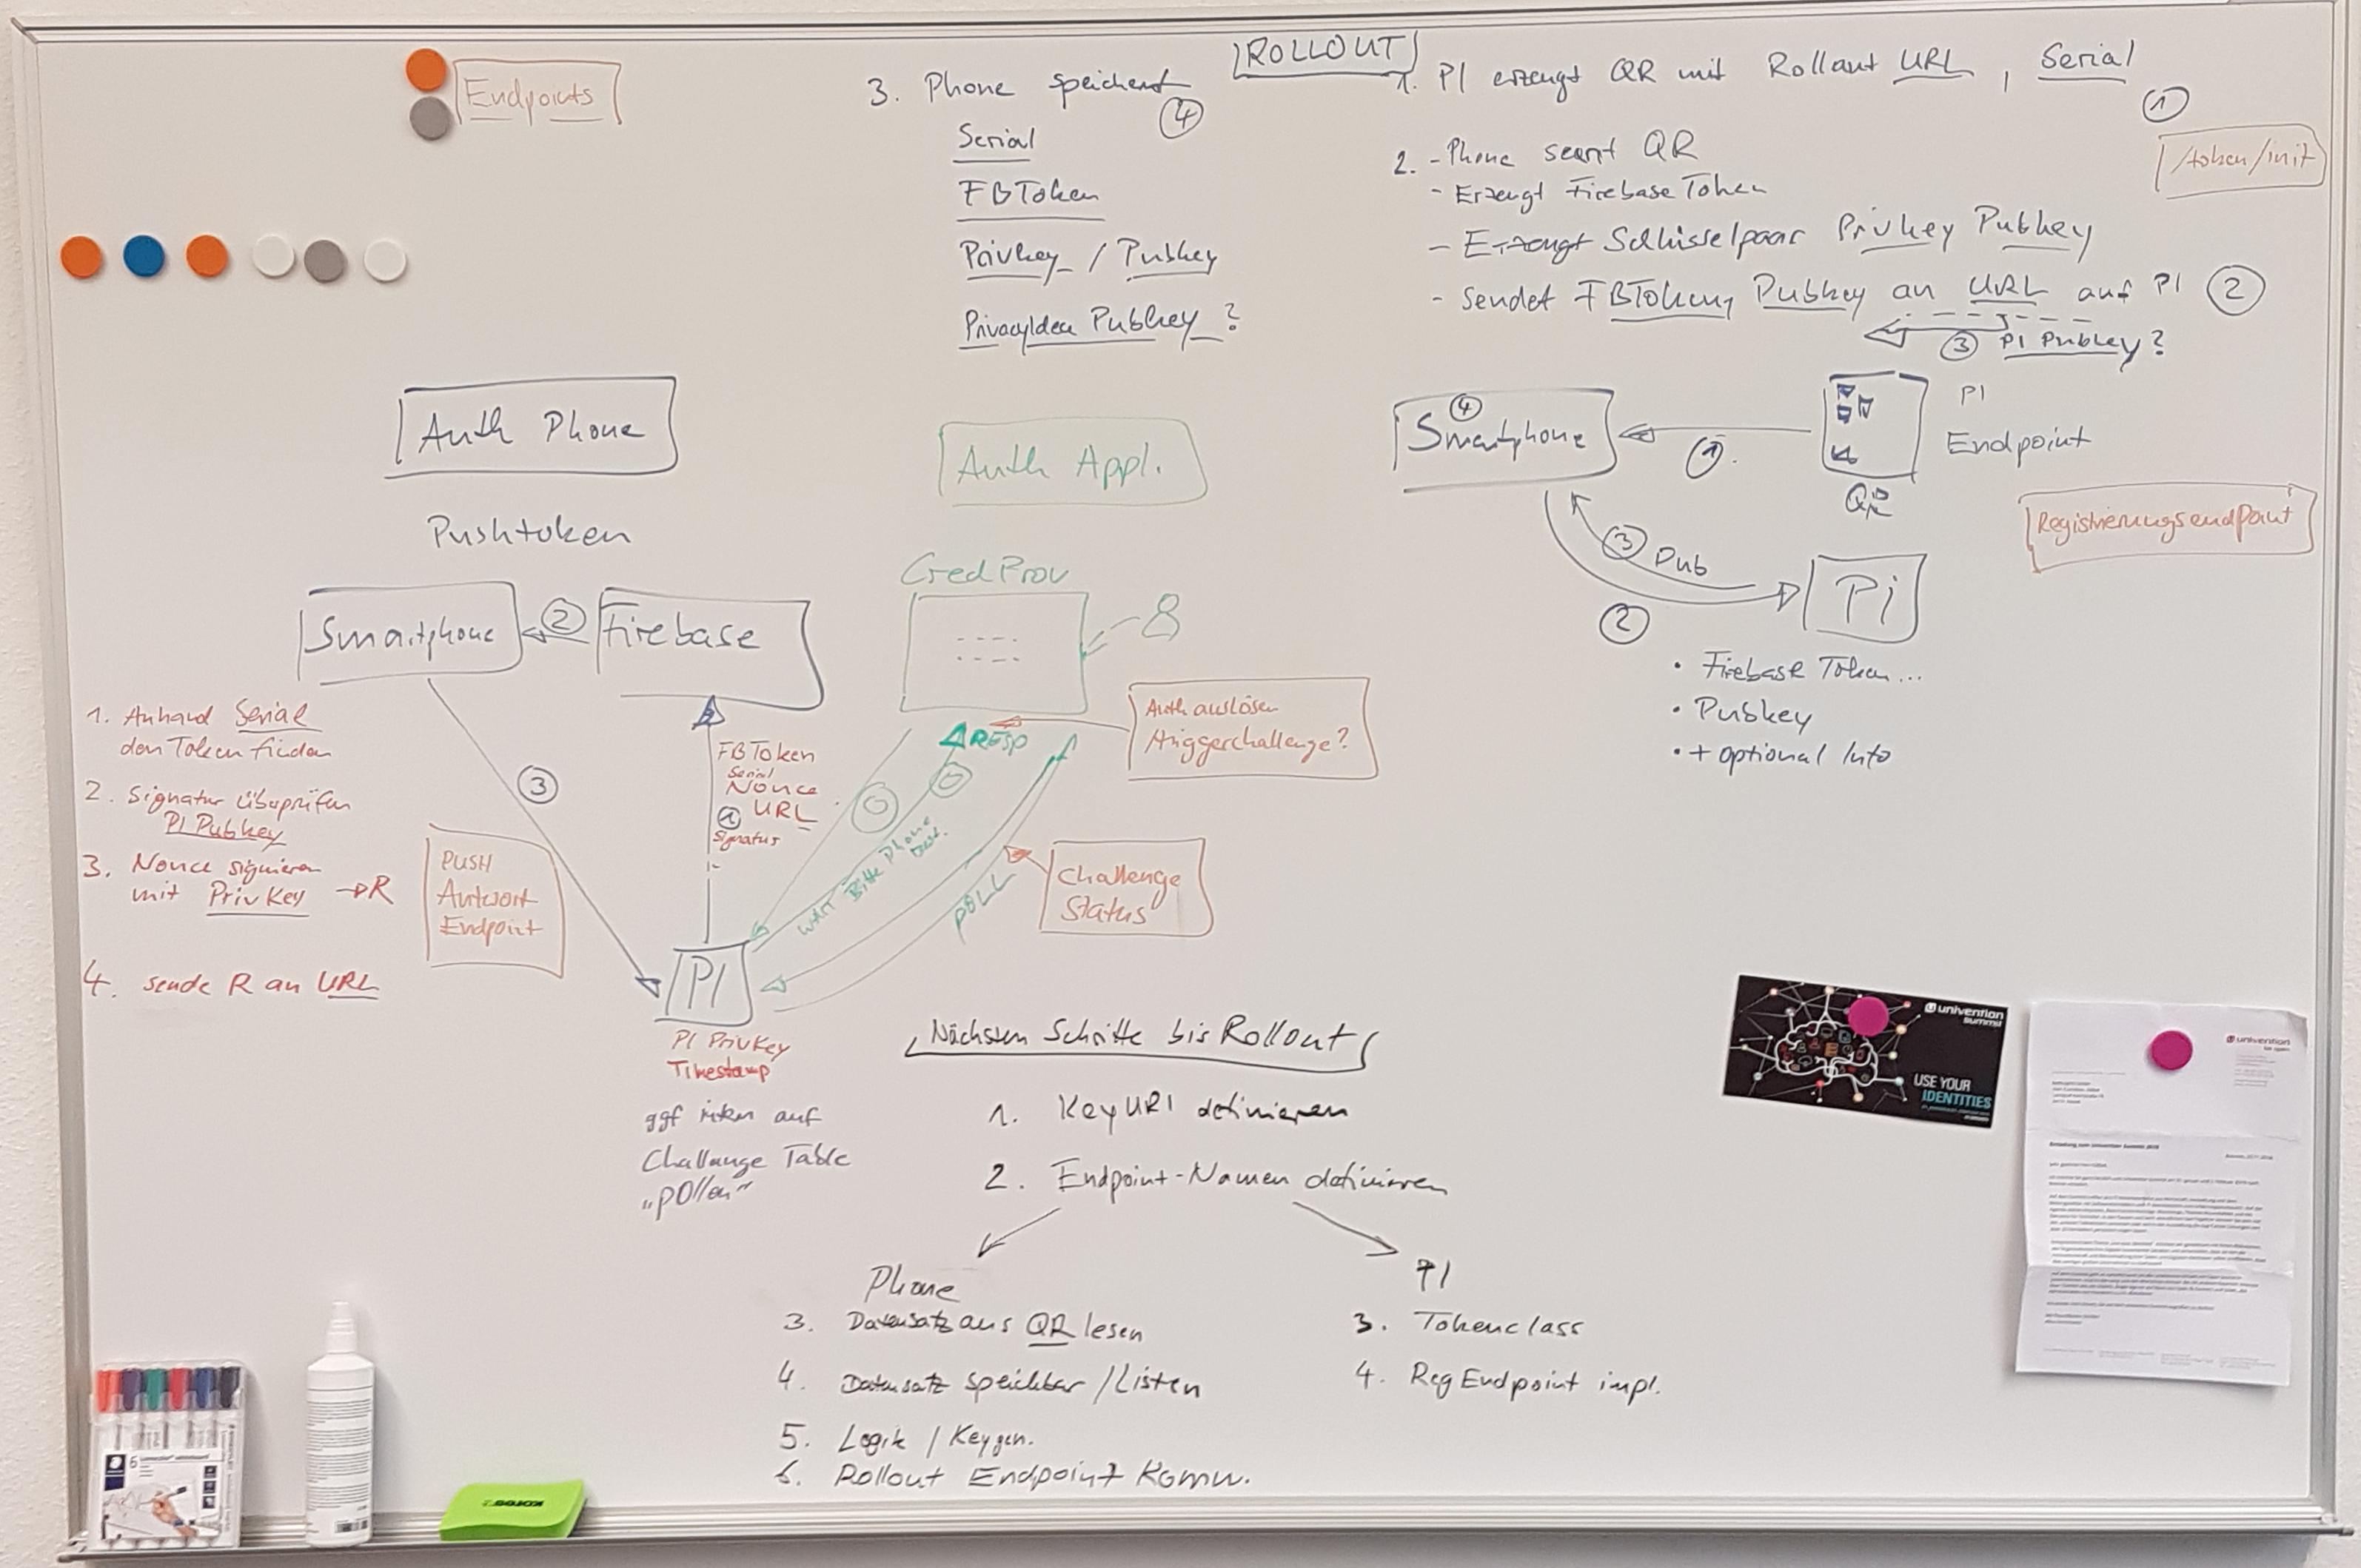 Endpoints
ROLLOUT
3. Phone speichert
④
Serial
FBToken
Privkey / Pubkey
PrivacyIdea Pubkey ?
1. PI erzeugt QR mit Rollout URL, Serial
①
/token/init
2. - Phone scannt QR
- Erzeugt Firebase Token
- Erzeugt Schlüsselpaar Privkey Pubkey
- Sendet FBToken, Pubkey an URL auf PI ②
③ PI Pubkey?
Auth Phone
Pushtoken
Smartphone
②
Firebase
③
FBToken
Serial
Nonce
① URL
Signatur
1. Anhand Serial
den Token finden
2. Signatur überprüfen
PI Pubkey
3. Nonce signieren
mit PrivKey → R
4. sende R an URL
PUSH
Antwort
Endpoint
PI
PI PrivKey
Timestamp
ggf auf
Challange Table
„pollen"
Auth Appl.
CredProv
RESP
0
0
WAIT Bitte Phone
POLL
Auth auslösen
/triggerchallenge?
Challenge
Status
④
Smartphone
①.
PI
Endpoint
QR
Registrierungsendpoint
③ Pub
②
Pi
• Firebase Token...
• Pubkey
• + optional Info
Nächsten Schritte bis Rollout
1. KeyURI definieren
2. Endpoint-Namen definieren
Phone
3. Datensatz aus QR lesen
4. Datensatz speichbar / Listen
5. Logik / Keygen.
6. Rollout Endpoint Komm.
PI
3. Tokenclass
4. Reg Endpoint impl.
univention
summit
USE YOUR
IDENTITIES
univention
be open
Einladung zum Univention Summit 2019
STAEDTLER
6
kores